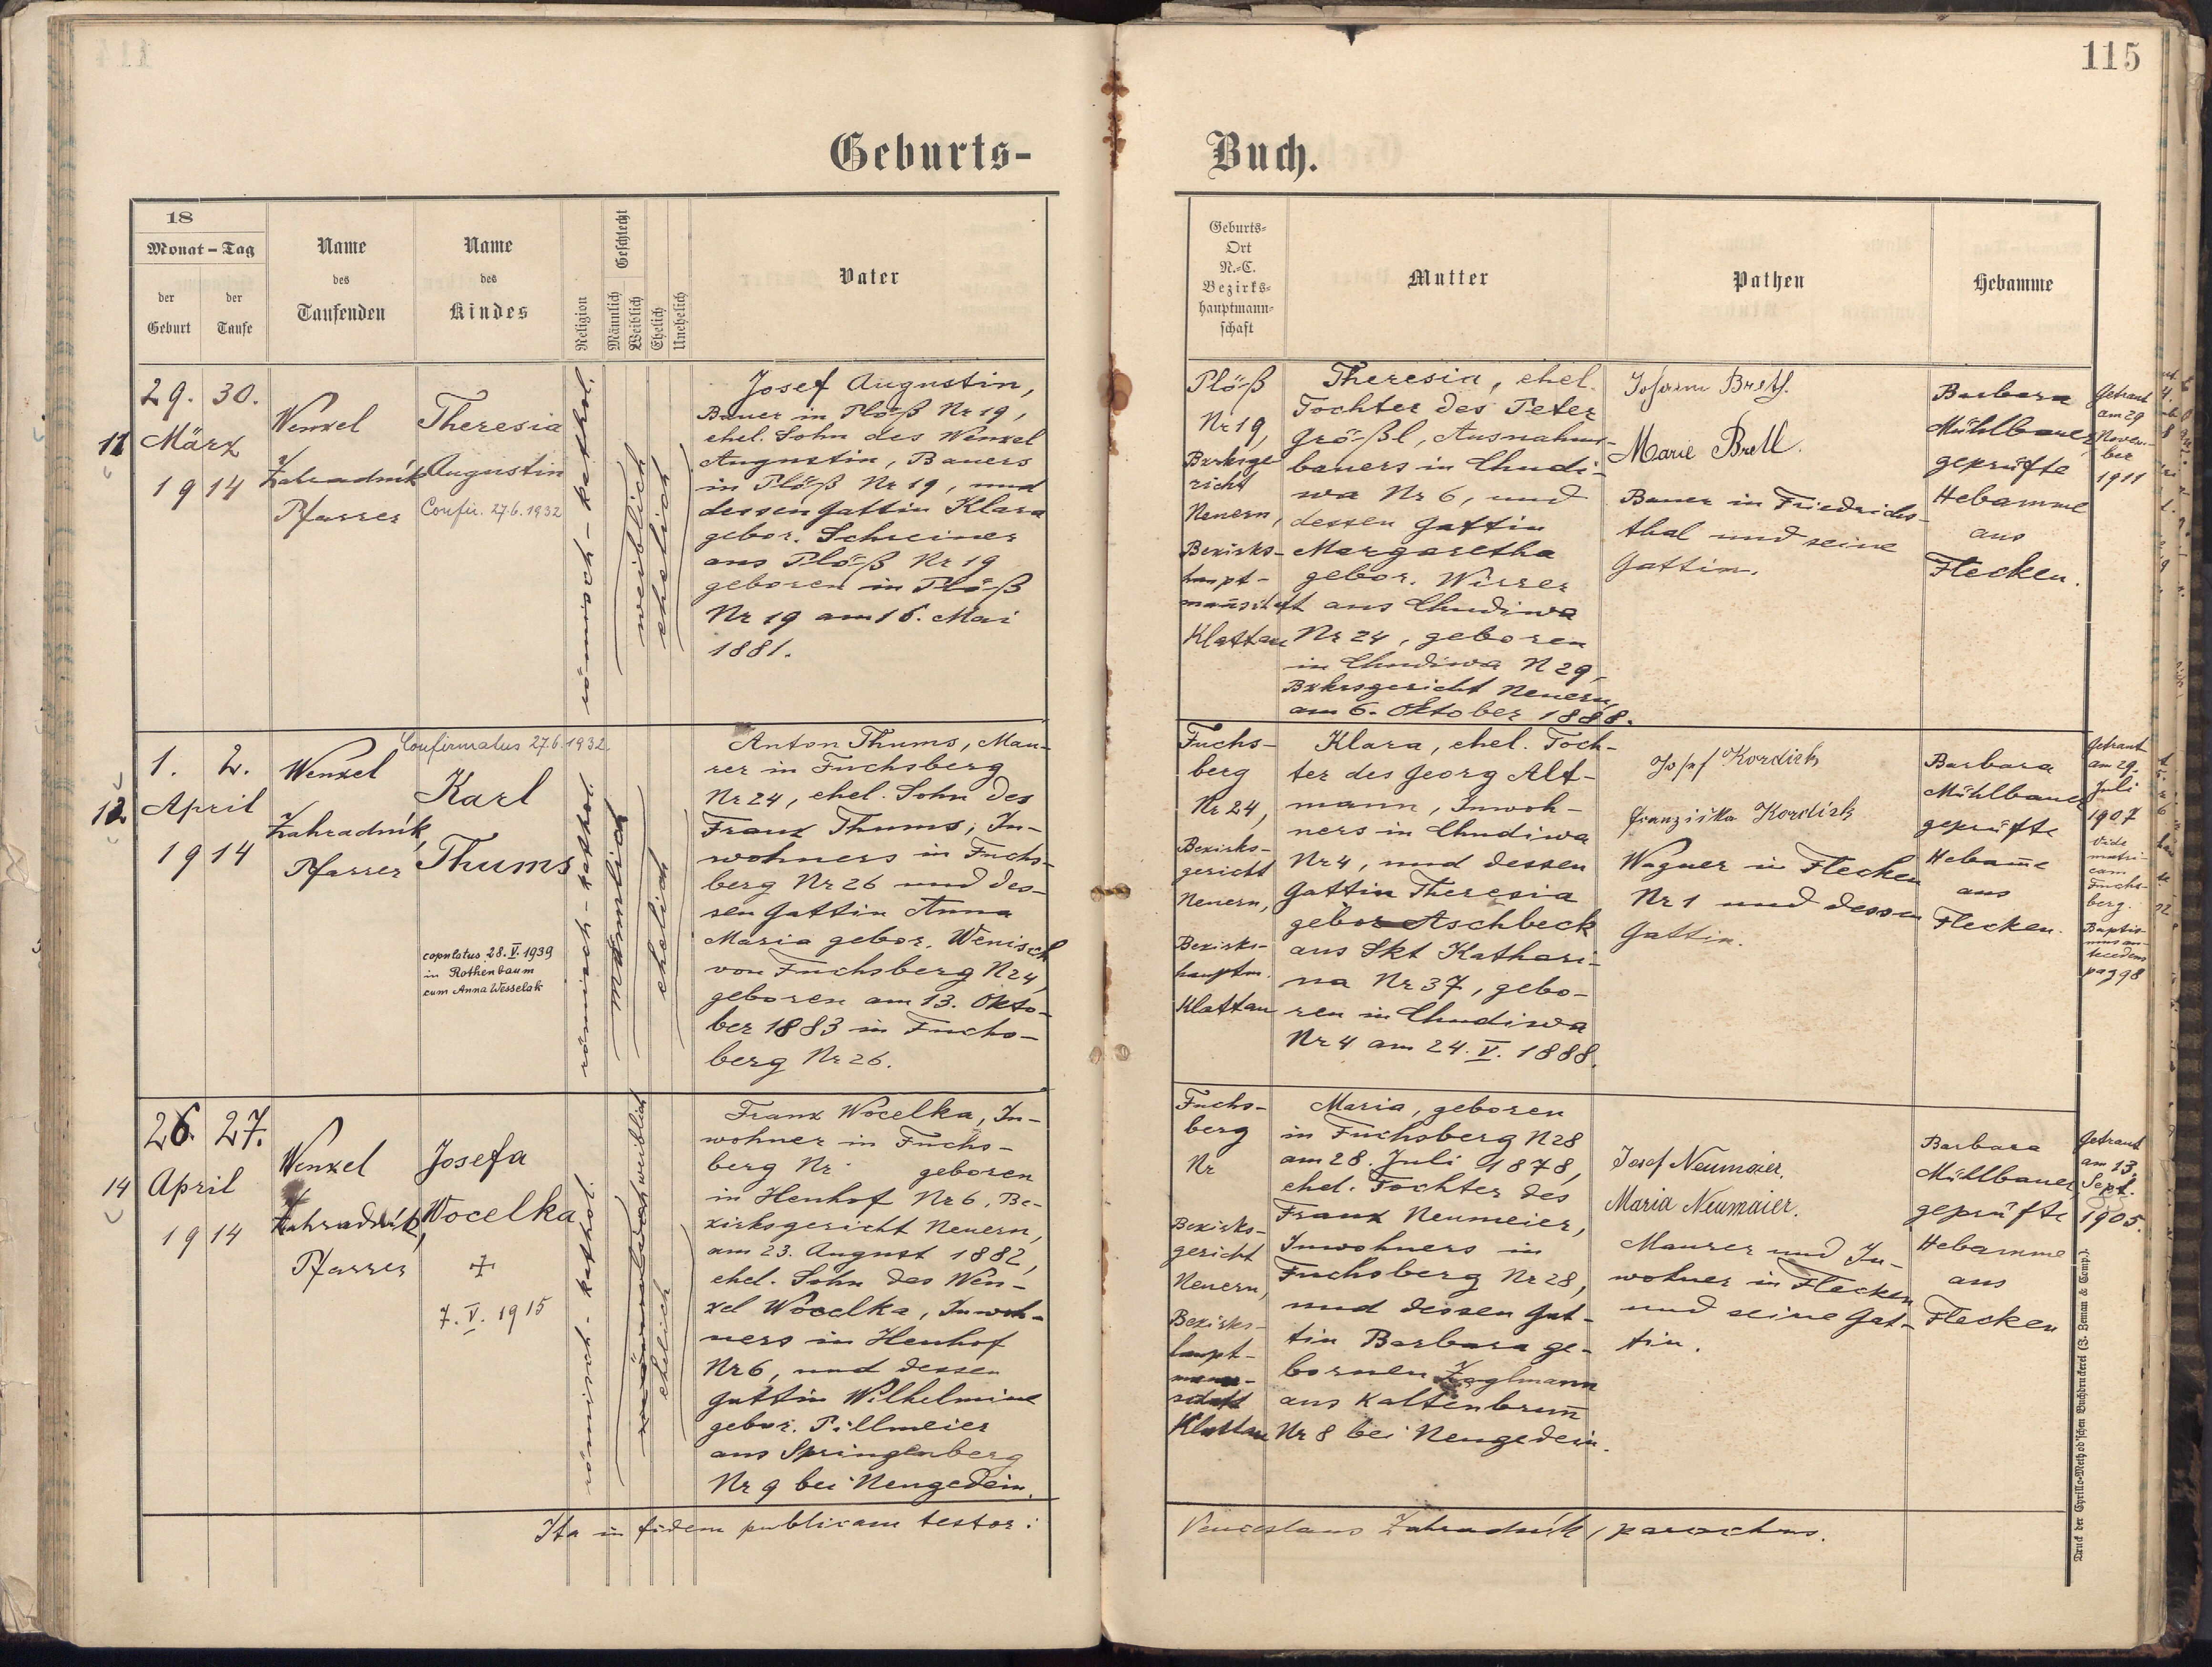 115
Geburts-
Buch.
18
Monat - Tag
der Geburt
der Taufe
Name
des
Taufenden
Name
des
Kindes
Religion
Geschlecht
Männlich
Weiblich
Ehelich
Unehelich
Vater
Geburts-
Ort
N.-C.
Bezirks-
hauptmann-
schaft
Mutter
Pathen
Hebamme
11
29. 30.
März
1914
Wenzel
Zahradník
Pfarrer
Theresia
Augustin
Confir. 27.6.1932
römisch-kathol.
weiblich
ehelich
Josef Augustin,
Bauer in Plöß Nr 19,
ehel. Sohn des Wenzel
Augustin, Bauers
in Plöß Nr 19, und
dessen Gattin Klara
gebor. Schreiner
aus Plöß Nr 19
geboren in Plöß
Nr 19 am 16. Mai
1881.
Plöß
Nr 19,
Bzksge
richt
Neuern,
Bezirks-
haupt-
mannschaft
Klattau
Theresia, ehel.
Tochter des Peter
Größl, Ausnahms-
bauers in Chudi-
wa Nr 6, und
dessen Gattin
Margaretha
gebor. Wirrer
aus Chudiwa
Nr 24, geboren
in Chudiwa N 29,
Bzkrsgericht Neuern,
am 6. Oktober 1888.
Johann Brett.
Marie Brett.
Bauer in Friedrichs-
thal und seine
Gattin.
Barbara
Mühlbauer
geprüfte
Hebamme
aus
Flecken.
Getraut
am 29
Novem-
ber
1911
12
1. 2.
April
1914
Wenzel
Zahradník,
Pfarrer
Confirmatus 27.6.1932.
Karl
Thums
copulatus 28. V. 1939
in Rothenbaum
cum Anna Wesselak
römisch-kathol.
männlich
ehelich
Anton Thums, Mau-
rer in Fuchsberg
Nr 24, ehel. Sohn des
Franz Thums, In-
wohners in Fuchs-
berg Nr 26 und des-
sen Gattin Anna
Maria gebor. Wenisch
von Fuchsberg N 24,
geboren am 13. Okto-
ber 1883 in Fuchs-
berg Nr 26.
Fuchs-
berg
Nr 24,
Bezirks-
gericht
Neuern,
Bezirks-
hauptm.
Klattau
Klara, ehel. Toch-
ter des Georg Alt-
mann, Inwoh-
ners in Chudiwa
Nr 4, und dessen
Gattin Theresia
gebor Aschbeck
aus Skt Kathari-
na Nr 37, gebo-
ren in Chudiwa
Nr 4 am 24. V. 1888.
Josef Kordick
Franziska Kordick
Wagner in Flecken
Nr 1 und dessen
Gattin.
Barbara
Mühlbauer
geprüfte
Hebam̄e
aus
Flecken.
Getraut
am 29.
Juli
1907
Vide
matri-
cam
Fuchs-
berg.
Baptis-
mus an-
tecedens
pag 98
14
26. 27.
April
1914
Wenzel
Zahradník,
Pfarrer
Josefa
Wocelka
✠
7. V. 1915
römisch-kathol.
weiblich
ehelich
Franz Wocelka, In-
wohner in Fuchs-
berg Nr geboren
in Henhof Nr 6, Be-
zirksgericht Neuern,
am 23. August 1882,
ehel. Sohn des Wen-
zel Wocelka, Inwoh-
ners in Henhof
Nr 6, und dessen
Gattin Wilhelmine
gebor. Pillmeier
aus Springenberg
Nr 9 bei Neugedein.
Fuchs-
berg
Nr
Bezirks-
gericht
Neuern,
Bezirks-
haupt-
mann-
schaft
Klattau
Maria, geboren
in Fuchsberg N 28
am 28. Juli 1878,
ehel. Tochter des
Franz Neumeier,
Inwohners in
Fuchsberg Nr 28,
und dessen Gat-
tin Barbara ge-
bornen Zoglmann
aus Kaltenbrun̄
Nr 8 bei Neugedein.
Josef Neumaier.
Maria Neumaier.
Maurer und In-
wohner in Flecken
und seine Gat-
tin.
Barbara
Mühlbauer
geprüfte
Hebamme
aus
Flecken
Getraut
am 13.
Sept.
1905.
Ita in fidem publicam testor:
Venceslaus Zahradník, parochus.
Druck der Cyrillo-Method'schen Buchdruckerei (J. Zeman & Comp.).